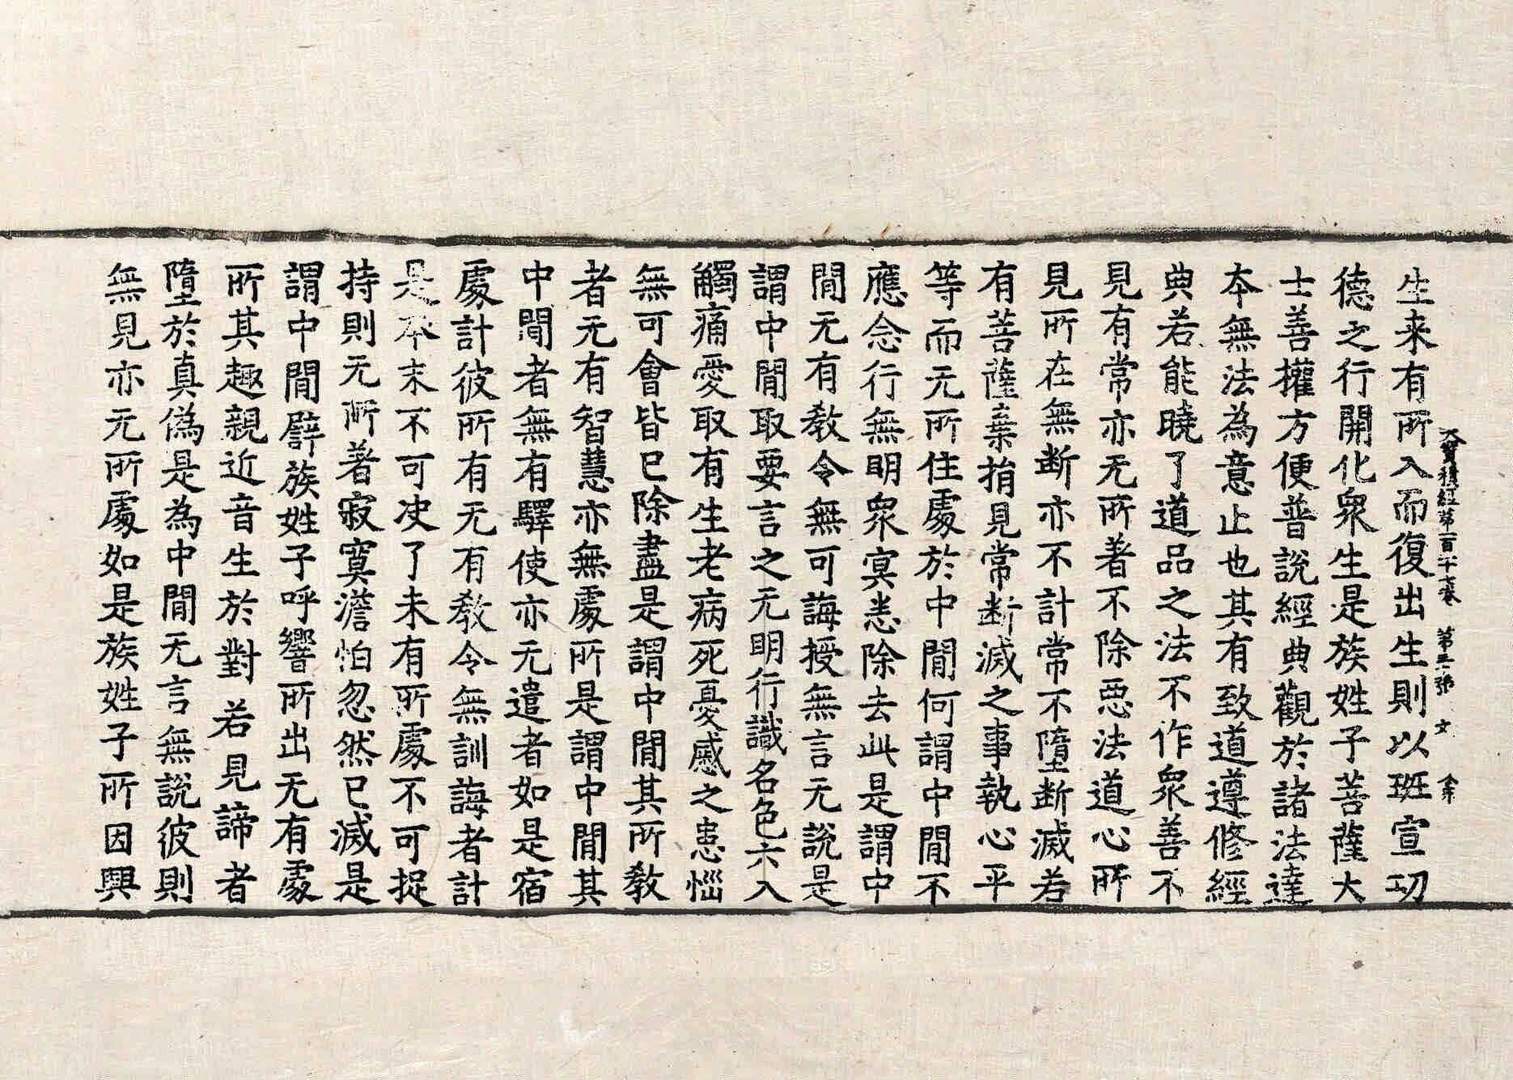 大寶積經第一百十七卷 第三張 文 
生来有所入而復出生則以班宣功
德之行開化衆生是族姓子菩薩大
士善權方便普説經典觀於諸法達
夲無法為意止也其有致道遵修經
典若能曉了道品之法不作衆善不
見有常亦无所著不除惡法道心所
見所在無断亦不計常不墮断滅若
有菩薩棄捐見常断滅之事執心平
等而无所住處於中間何謂中間不
應念行無明衆冥恚除去此是謂中
間无有教令無可誨授無言无說是
謂中間取要言之无明行識名色六入
觸痛愛取有生老病死憂慼之患惱
無可會皆已除盡是謂中間其所教
者无有智慧亦無處所是謂中間其
中間者無有驛使亦无遣者如是宿
處計彼所有无有教令無訓誨者計
是本末不可决了未有所處不可捉
持則无所著寂寞澹怕忽然已滅是
謂中間譬族姓子呼響所出无有處
所其趣親近音生於對若見諦者
墮於真偽是為中間无言無說彼則
無見亦无所處如是族姓子所因興